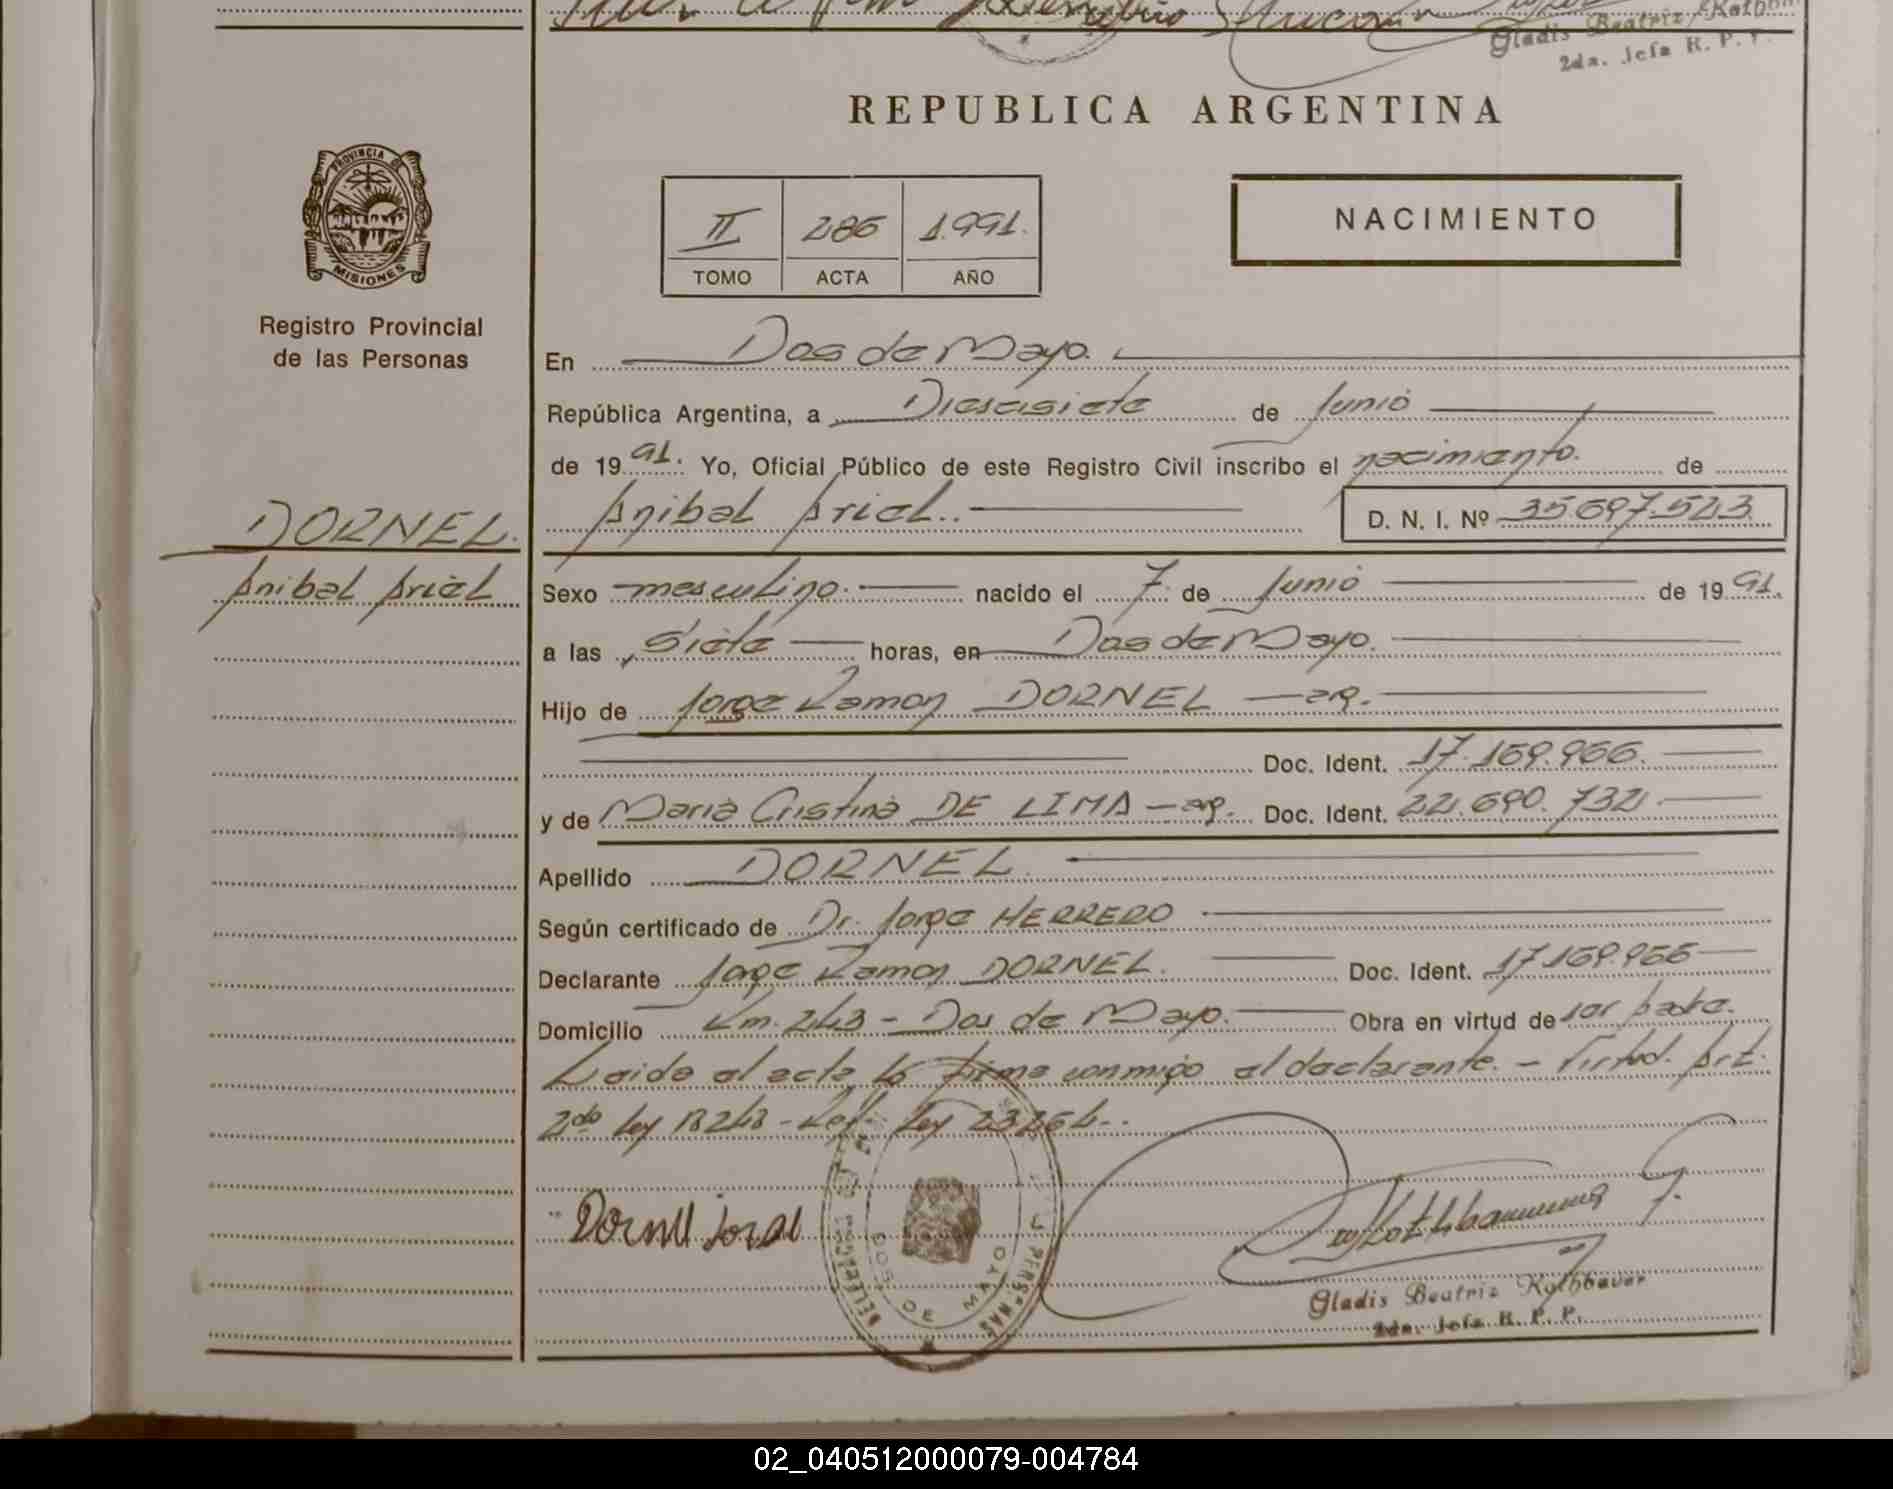 Gladis Beatriz Kothbauer
2da. Jefa R. P. P.
REPUBLICA ARGENTINA
PROVINCIA DE
MISIONES
Registro Provincial
de las Personas
II 286 1.991.
TOMO ACTA AÑO
NACIMIENTO
En Dos de Mayo.
República Argentina, a Diesisiete de Junio
de 19 91. Yo, Oficial Público de este Registro Civil inscribo el nacimiento. de
Anibal Ariel.. D. N. I. Nº 35.697.523
DORNEL.
Anibal Ariel
Sexo masculino. nacido el 7 de Junio de 19 91.
a las Siete horas, en Dos de Mayo.
Hijo de Jorge Ramon DORNEL - arg.
Doc. Ident. 17.169.966.
y de Maria Cristina DE LIMA - arg. Doc. Ident. 22.690.732.
Apellido DORNEL.
Según certificado de Dr. Jorge HERRERO
Declarante Jorge Ramon DORNEL. Doc. Ident. 17.169.966
Domicilio Km. 243 - Dos de Mayo. Obra en virtud de ser padre.
Leida el acta la firma conmigo el declarante. - Virtud. Art.
2do Ley 18248 - Ley 23264..
Dornell Jorge
DOS DE MAYO
Gladis Beatriz Kothbauer
2da. Jefa R. P. P.
02_040512000079-004784